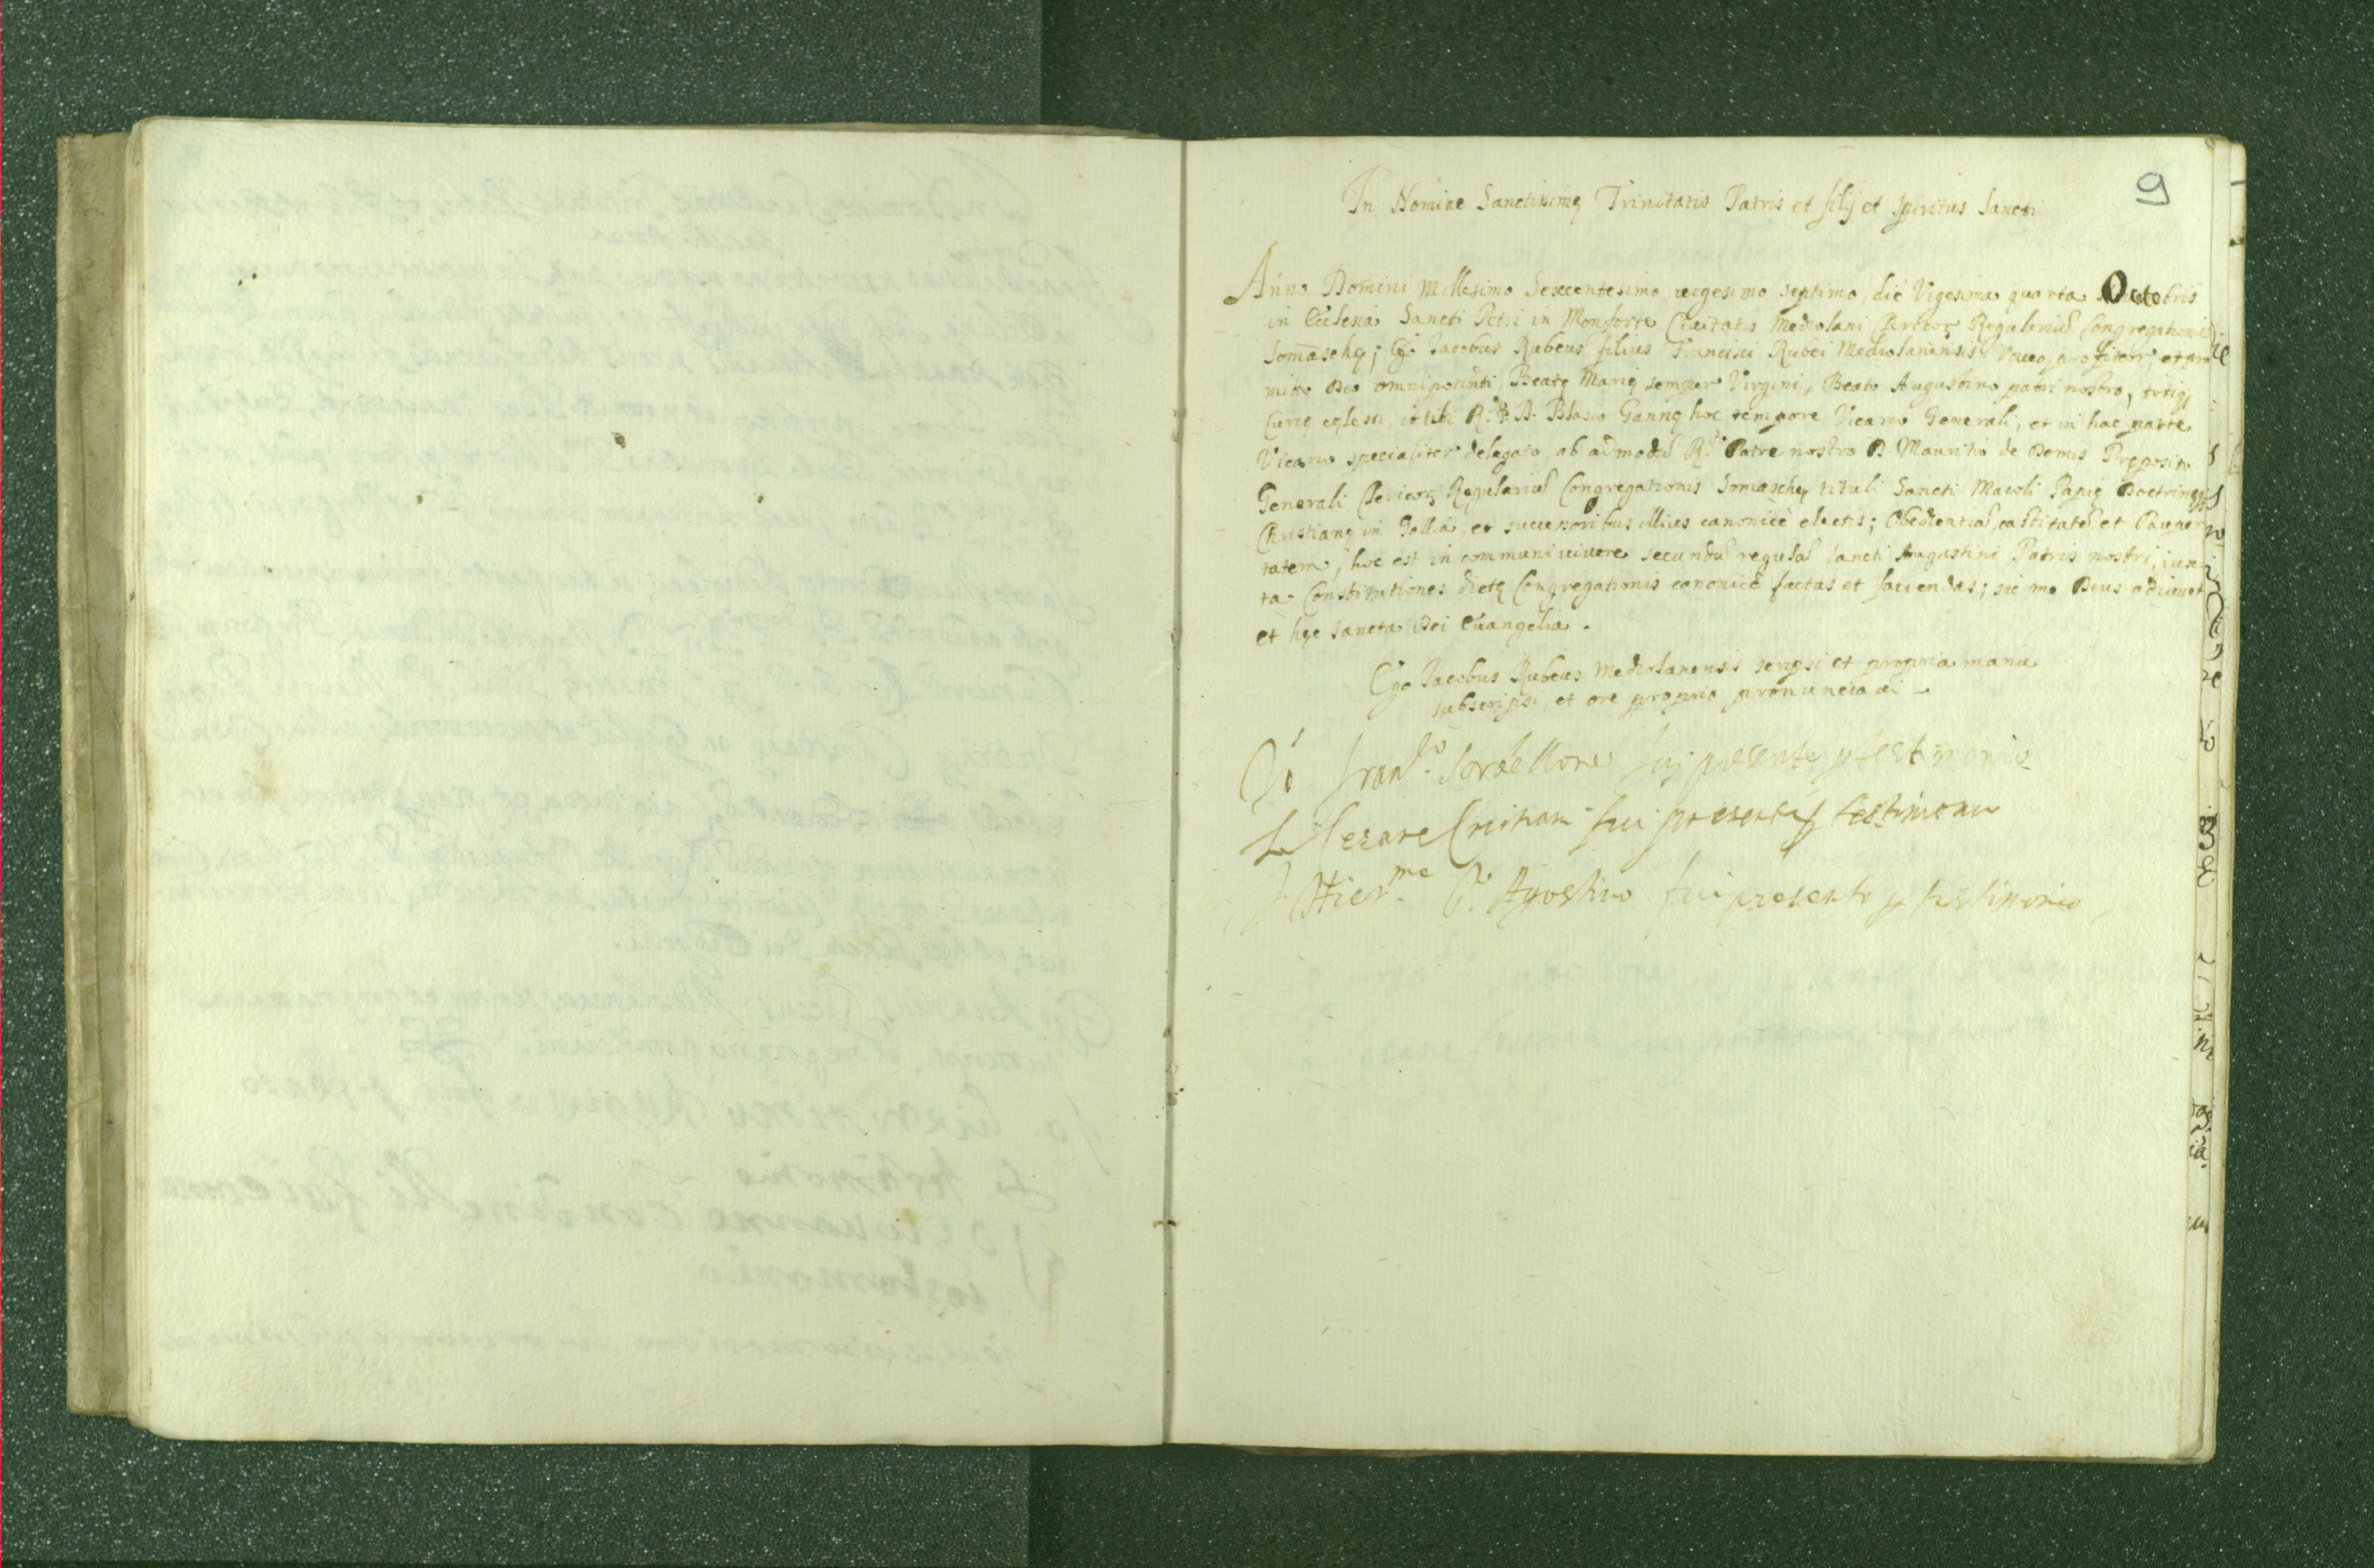 9
In Nomine Sanctissimę Trinitatis Patris et filij et spiritus Sancti
Anno Domini Millesimo Sexcentesimo uigesimo septimo, die Vigesima quarta Octobris
in Ecclesia Sancti Petri in Monforte Ciuitatis Mediolani Clericoꝝ Regulariũ Congregationis
Somaschę; Ego Jacobus Rubeus filius Francisci Rubei Mediolanensis Voueo, profiteor, et pro
mitto Deo omnipotenti, Beatę Marię semper Virgini, Beato Augustino patri nostro, totiq,
Curię cęlesti, et tibi R. P. D. Blasio Gannę hoc tempore Vicario Generali, et in hac parte
Vicario specialiter delegato, ab admodũ R. Patre nostro D. Mauritio de Domis Pręposito
Generali Clericoꝝ Regulariũ Congregationis Somaschę, tituli Sancti Maeoli Papię Doctrinęq
Christianę in Gallia, et successoribus illius canonicè electis; Obedientiã, castitatẽ et Pauper
tatem, hoc est in communi uiuere secundũ regulã sancti Augustini Patris nostri, iux
ta Constitutiones dictę Congregationis canonicè factas et faciendas; sic me Deus adiuuet
et hęc sancta Dei Euangelia.
Ego Jacobus Rubeus Mediolanensis scripsi et propria manu
subscripsi, et ore proprio pronunciaui
Io Fran.co Sorbellone fui presente p testimonio
Io Cesare Cristiani fui presente p testimonio
Io Hier.mo Agostino fui presente p testimonio